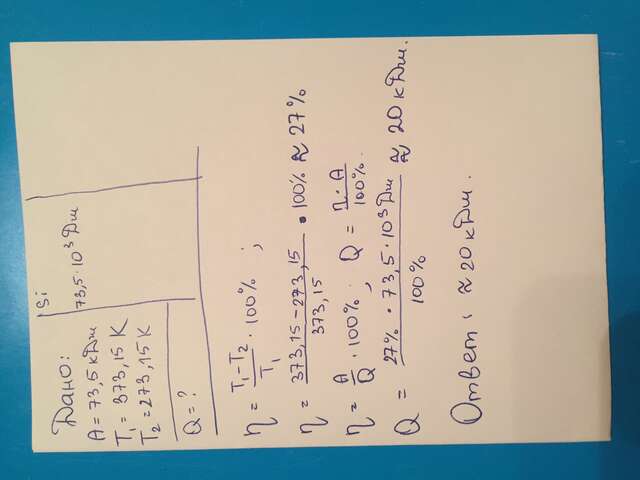 Дано:
A = 73,5 кДж
T₁ = 373,15 K
T₂ = 273,15 K
Q = ?
Si
73,5·10³ Дж
η = T₁-T₂/T₁ · 100% ;
η = 373,15-273,15/373,15 · 100% ≈ 27%
η = A/Q · 100% ; Q = η·A/100% .
Q = 27% · 73,5·10³Дж/100% ≈ 20 кДж.
Ответ: ≈ 20 кДж.